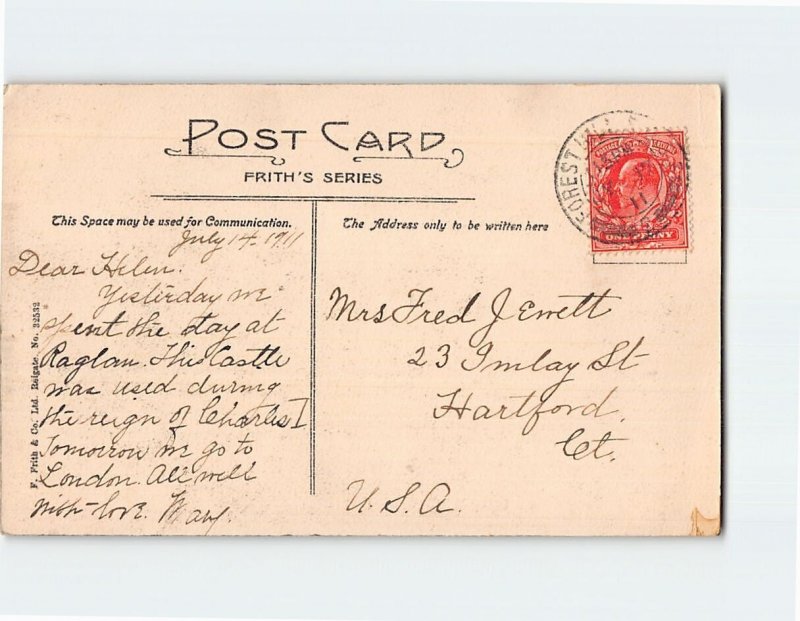 POST CARD
FRITH'S SERIES
This Space may be used for Communication.
The Address only to be written here
July 14. 1911
Dear Helen.
Yesterday we
spent the day at
Raglan. This Castle
was used during
the reign of Charles I
Tomorrow we go to
London. All well
with love. May.
Mrs Fred J Ewett
23 Imlay St
Hartford.
Ct.
U.S.A.
F. Frith & Co. Ltd. Reigate. No. 32532
FOREST HILL
11
ONE PENNY